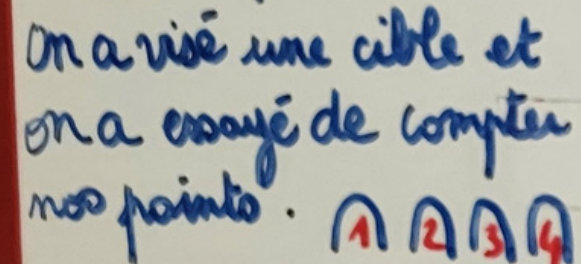 on a visé une cible et
on a essayé de compter
nos points. 1 2 3 4